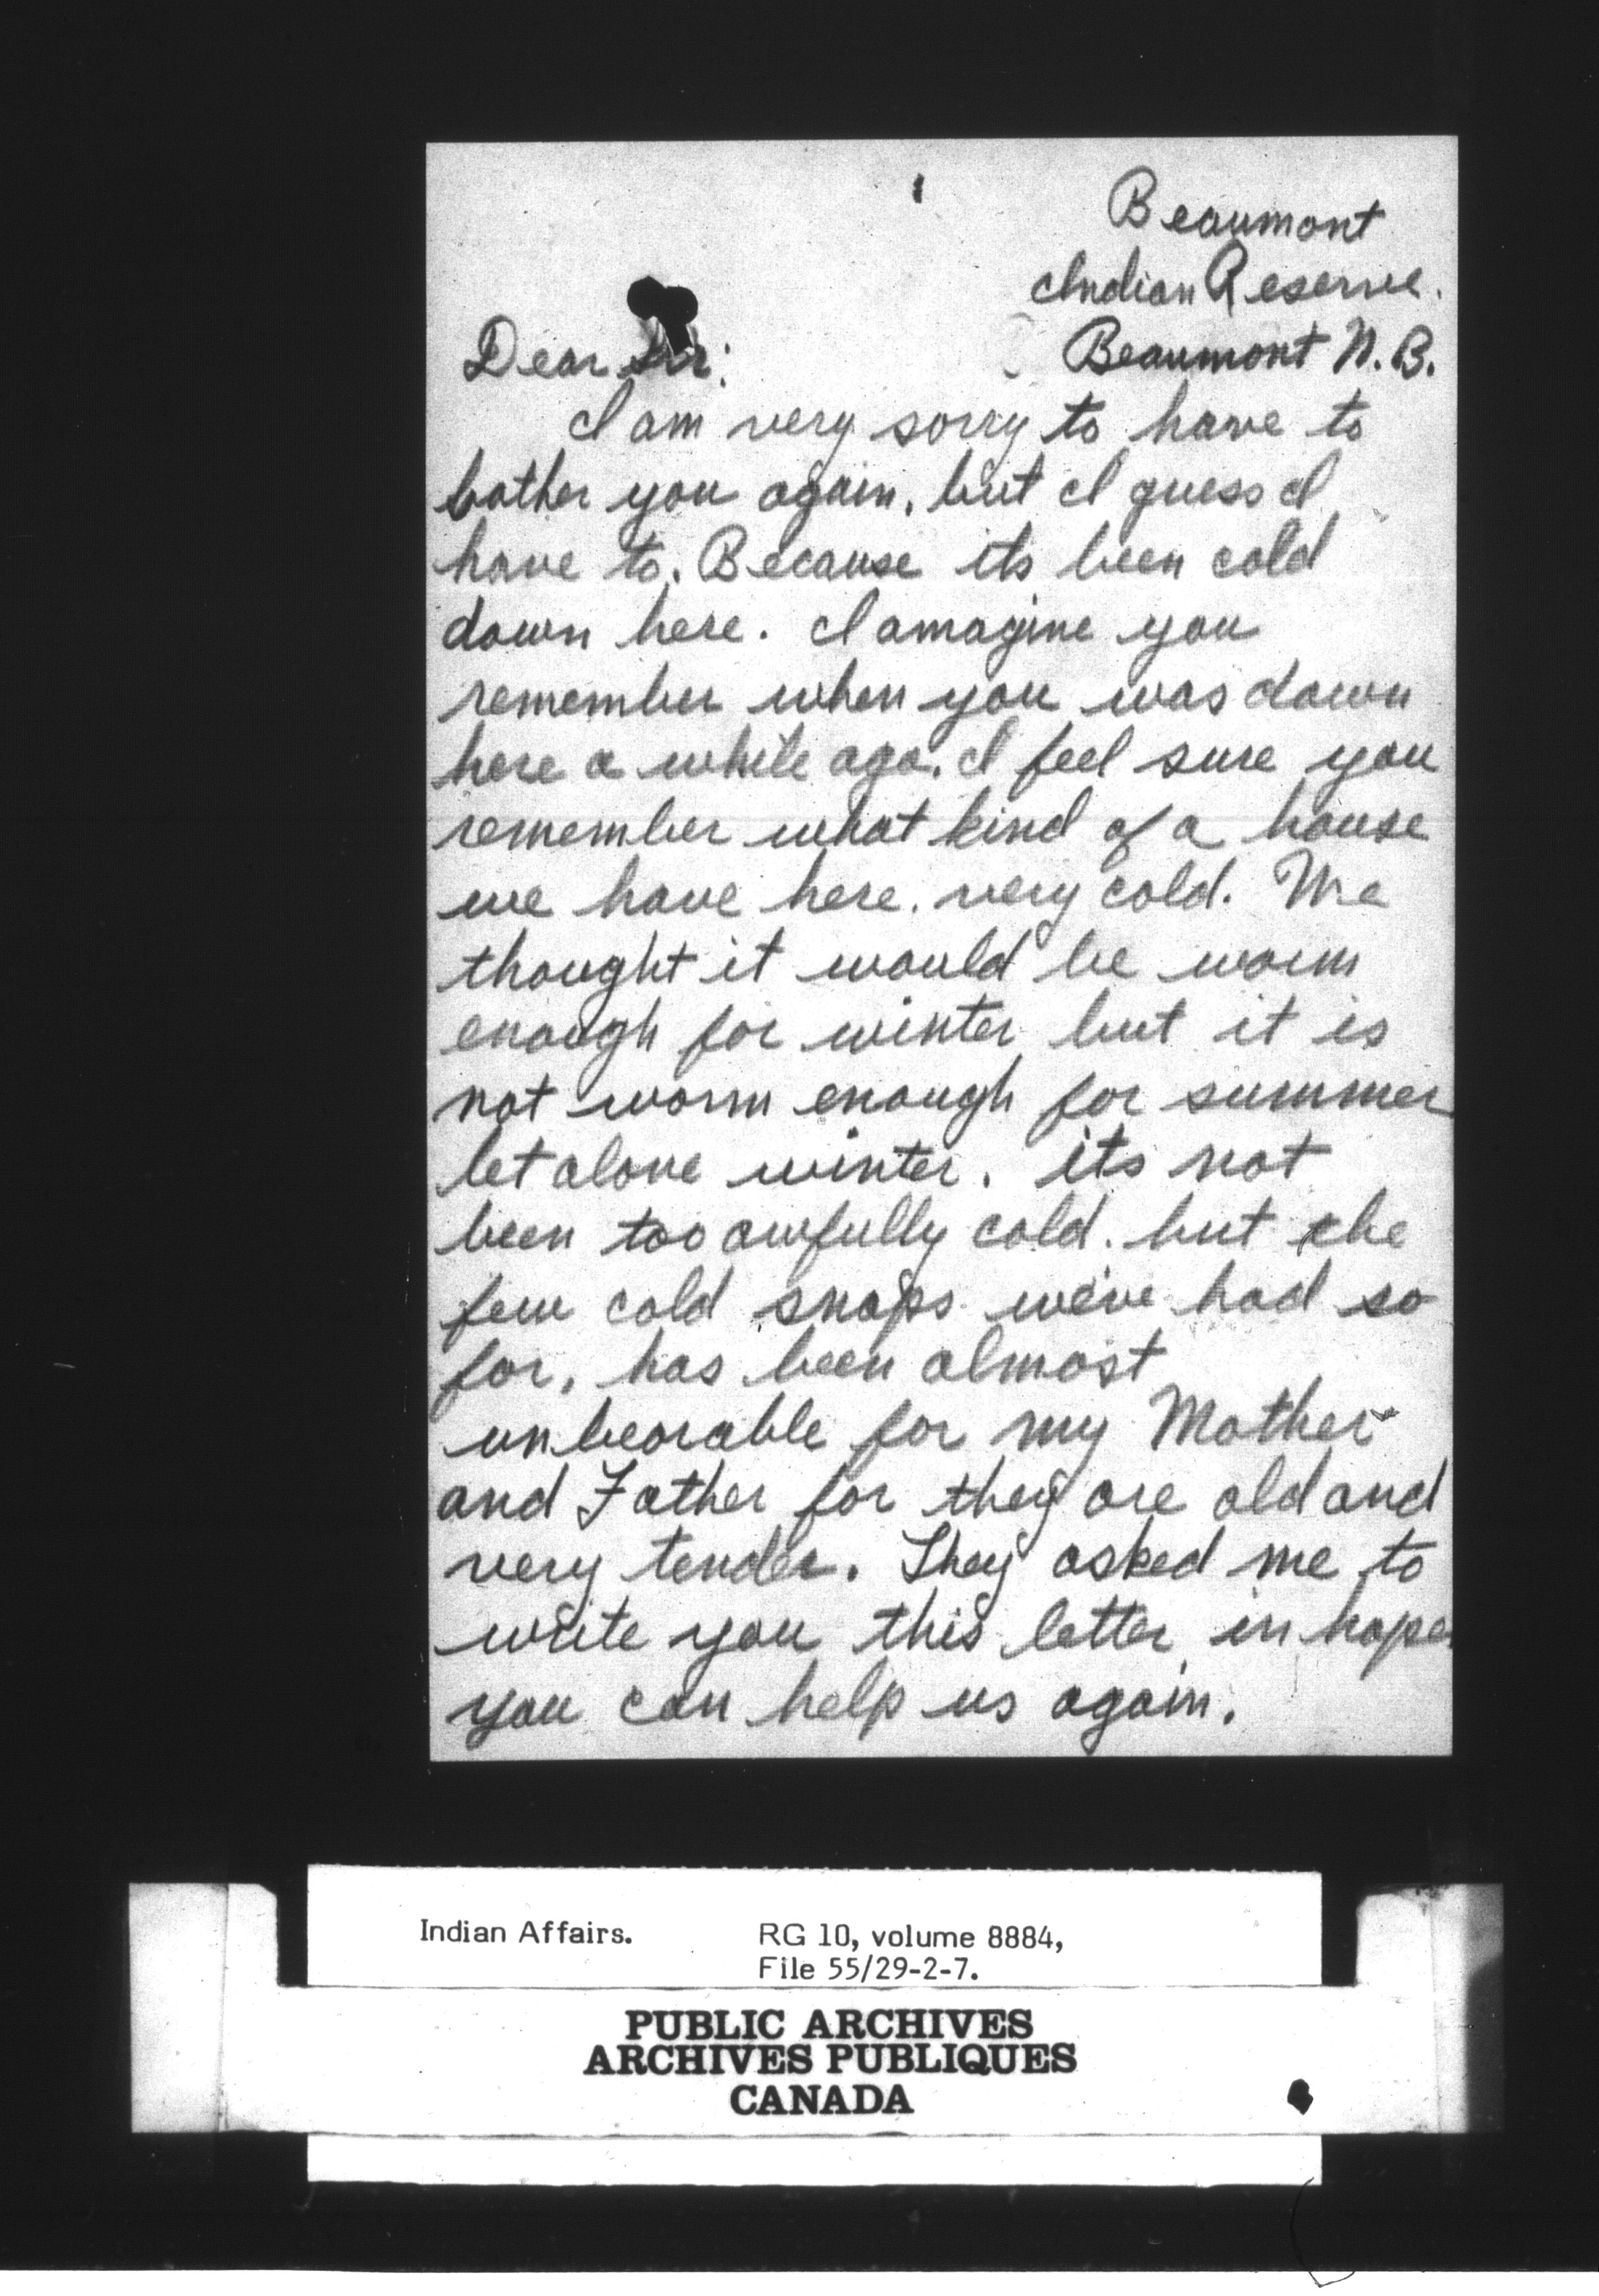 Beaumont
Indian Reserve.
Beaumont N.B.
Dear Sir:
I am very sorry to have to
bother you again, but I guess I
have to. Because its been cold
down here. I amagine you
remember when you was down
here a while ago. I feel sure you
remember what kind of a house
we have here. very cold. We
thought it would be warm
enough for winter but it is
not warm enough for summer
let alone winter. its not
been too awfully cold. but the
few cold snaps we've had so
far, has been almost
unbearable for my Mother
and Father for they are old and
very tender. They asked me to
write you this letter in hopes
you can help us again.
Indian Affairs. RG 10, volume 8884,
File 55/29-2-7.
PUBLIC ARCHIVES
ARCHIVES PUBLIQUES
CANADA